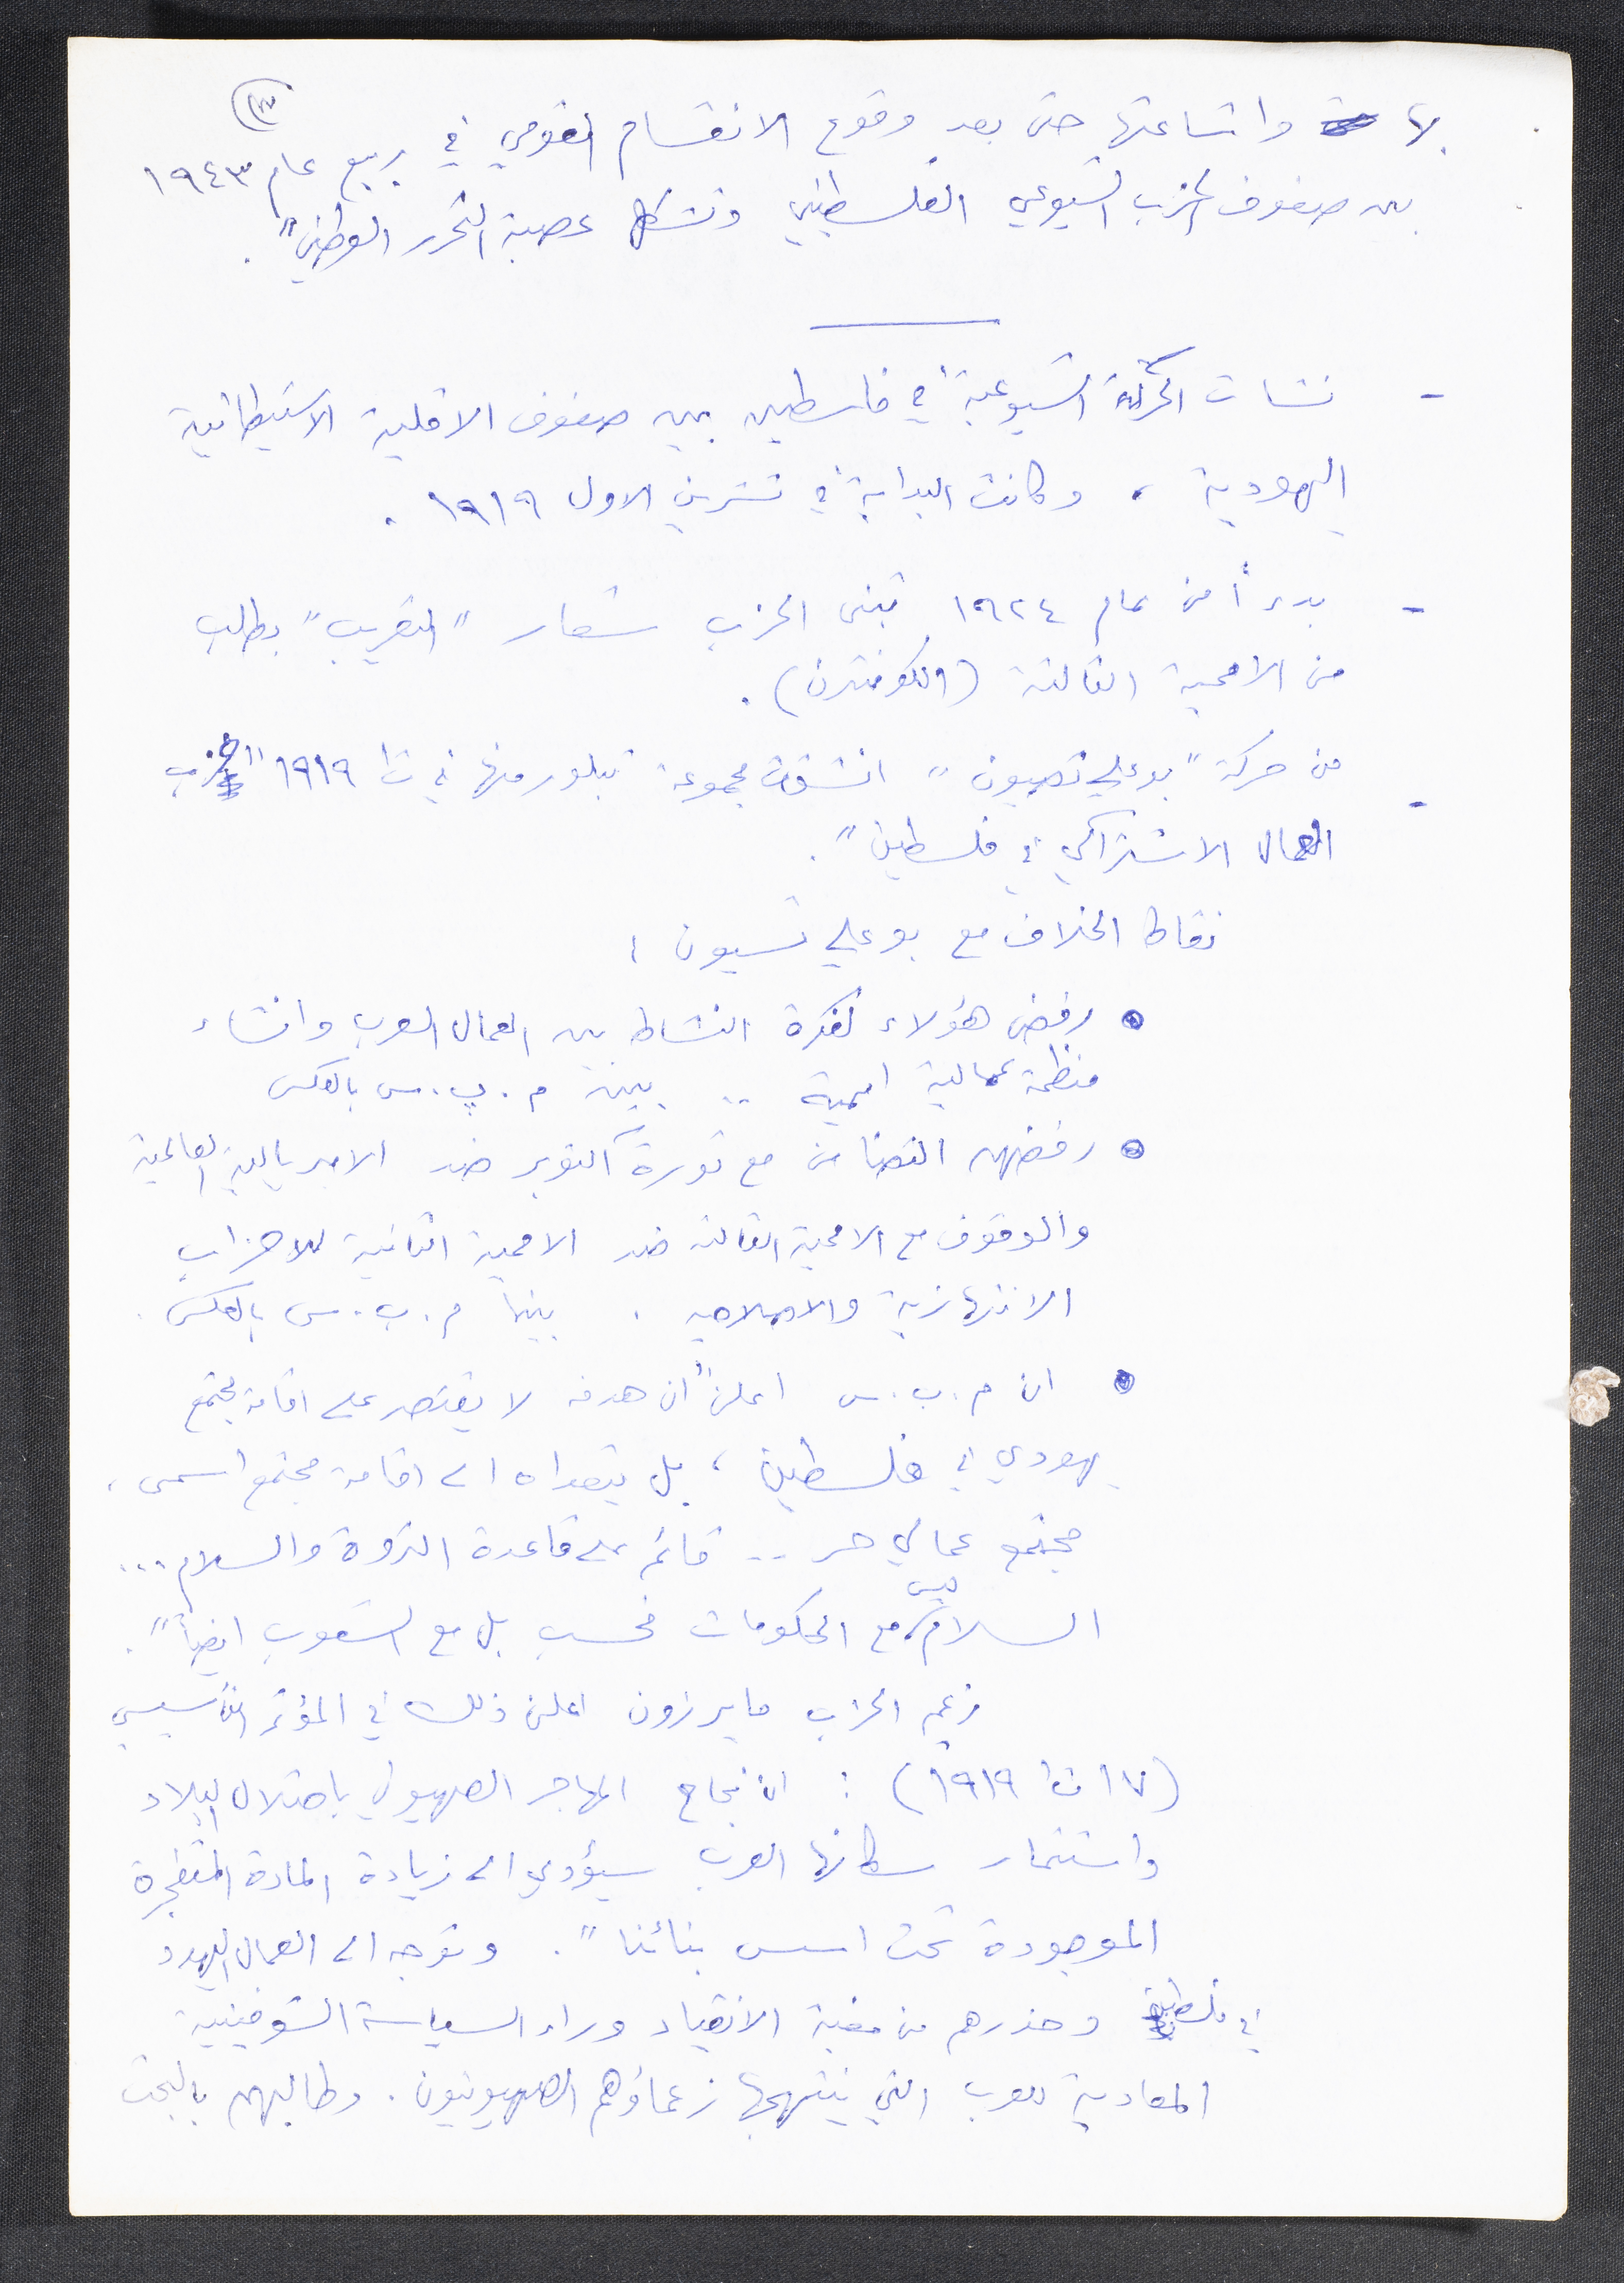 (٣)
بها واشاعتها حتى بعد وقوع الانقسام القومي في ربيع عام ١٩٤٣
بين صفوف الحزب الشيوعي الفلسطيني وتشكل عصبة التحرر الوطني".
- نشات الحركة الشيوعية في فلسطين بين صفوف الاقلية الاستيطانية
اليهودية ، وكانت البداية في تشرين الاول ١٩١٩ .
- بدءاً من عام ١٩٢٤ تبنى الحزب شعار "التعريب" بطلب
من الاممية الثالثة (الكومنترن) .
- من حركة "بوعلي تصيون" انشقت مجموعة تبلور منها في ت١ ١٩١٩ "حزب
العمال الاشتراكي في فلسطين".
نقاط الخلاف مع بوعلي تسيون :
• رفض هؤلاء لفكرة النشاط بين العمال العرب وانشاء
منظمة عمالية اممية .. بينما م.پ.س بالعكس
• رفضهم التضامن مع ثورة اكتوبر ضد الامبريالية العالمية
والوقوف مع الاممية الثالثة ضد الاممية الثانية للاحزاب
الانتهازية والاصلاحية . بينما م.ب.س بالعكس .
• ان م.ب.س اعلن "ان هدفه لا يقتصر على اقامة مجتمع
يهودي في فلسطين ، بل يتعداه الى اقامة مجتمع اسمى ،
مجتمع عمالي حر .. قائم على قاعدة الثروة والسلام ...
السلام ليس مع الحكومات فحسب بل مع الشعوب ايضاً".
زعيم الحزب مايرزون اعلن ذلك في المؤتمر التأسيسي
(١٧ ت١ ١٩١٩) : ان نجاح المهاجر الصهيوني باحتلال البلاد
واستثمار سكانها العرب سيؤدي الى زيادة المادة المتفجرة
الموجودة تحت اسس بنائنا". وتوجه الى العمال اليهود
في فلسطين وحذرهم من مغبة الانقياد وراء السياسة الشوفينية
المعادية للعرب التي ينتهجها زعماؤهم الصهيونيون . وطالبهم بالبحث